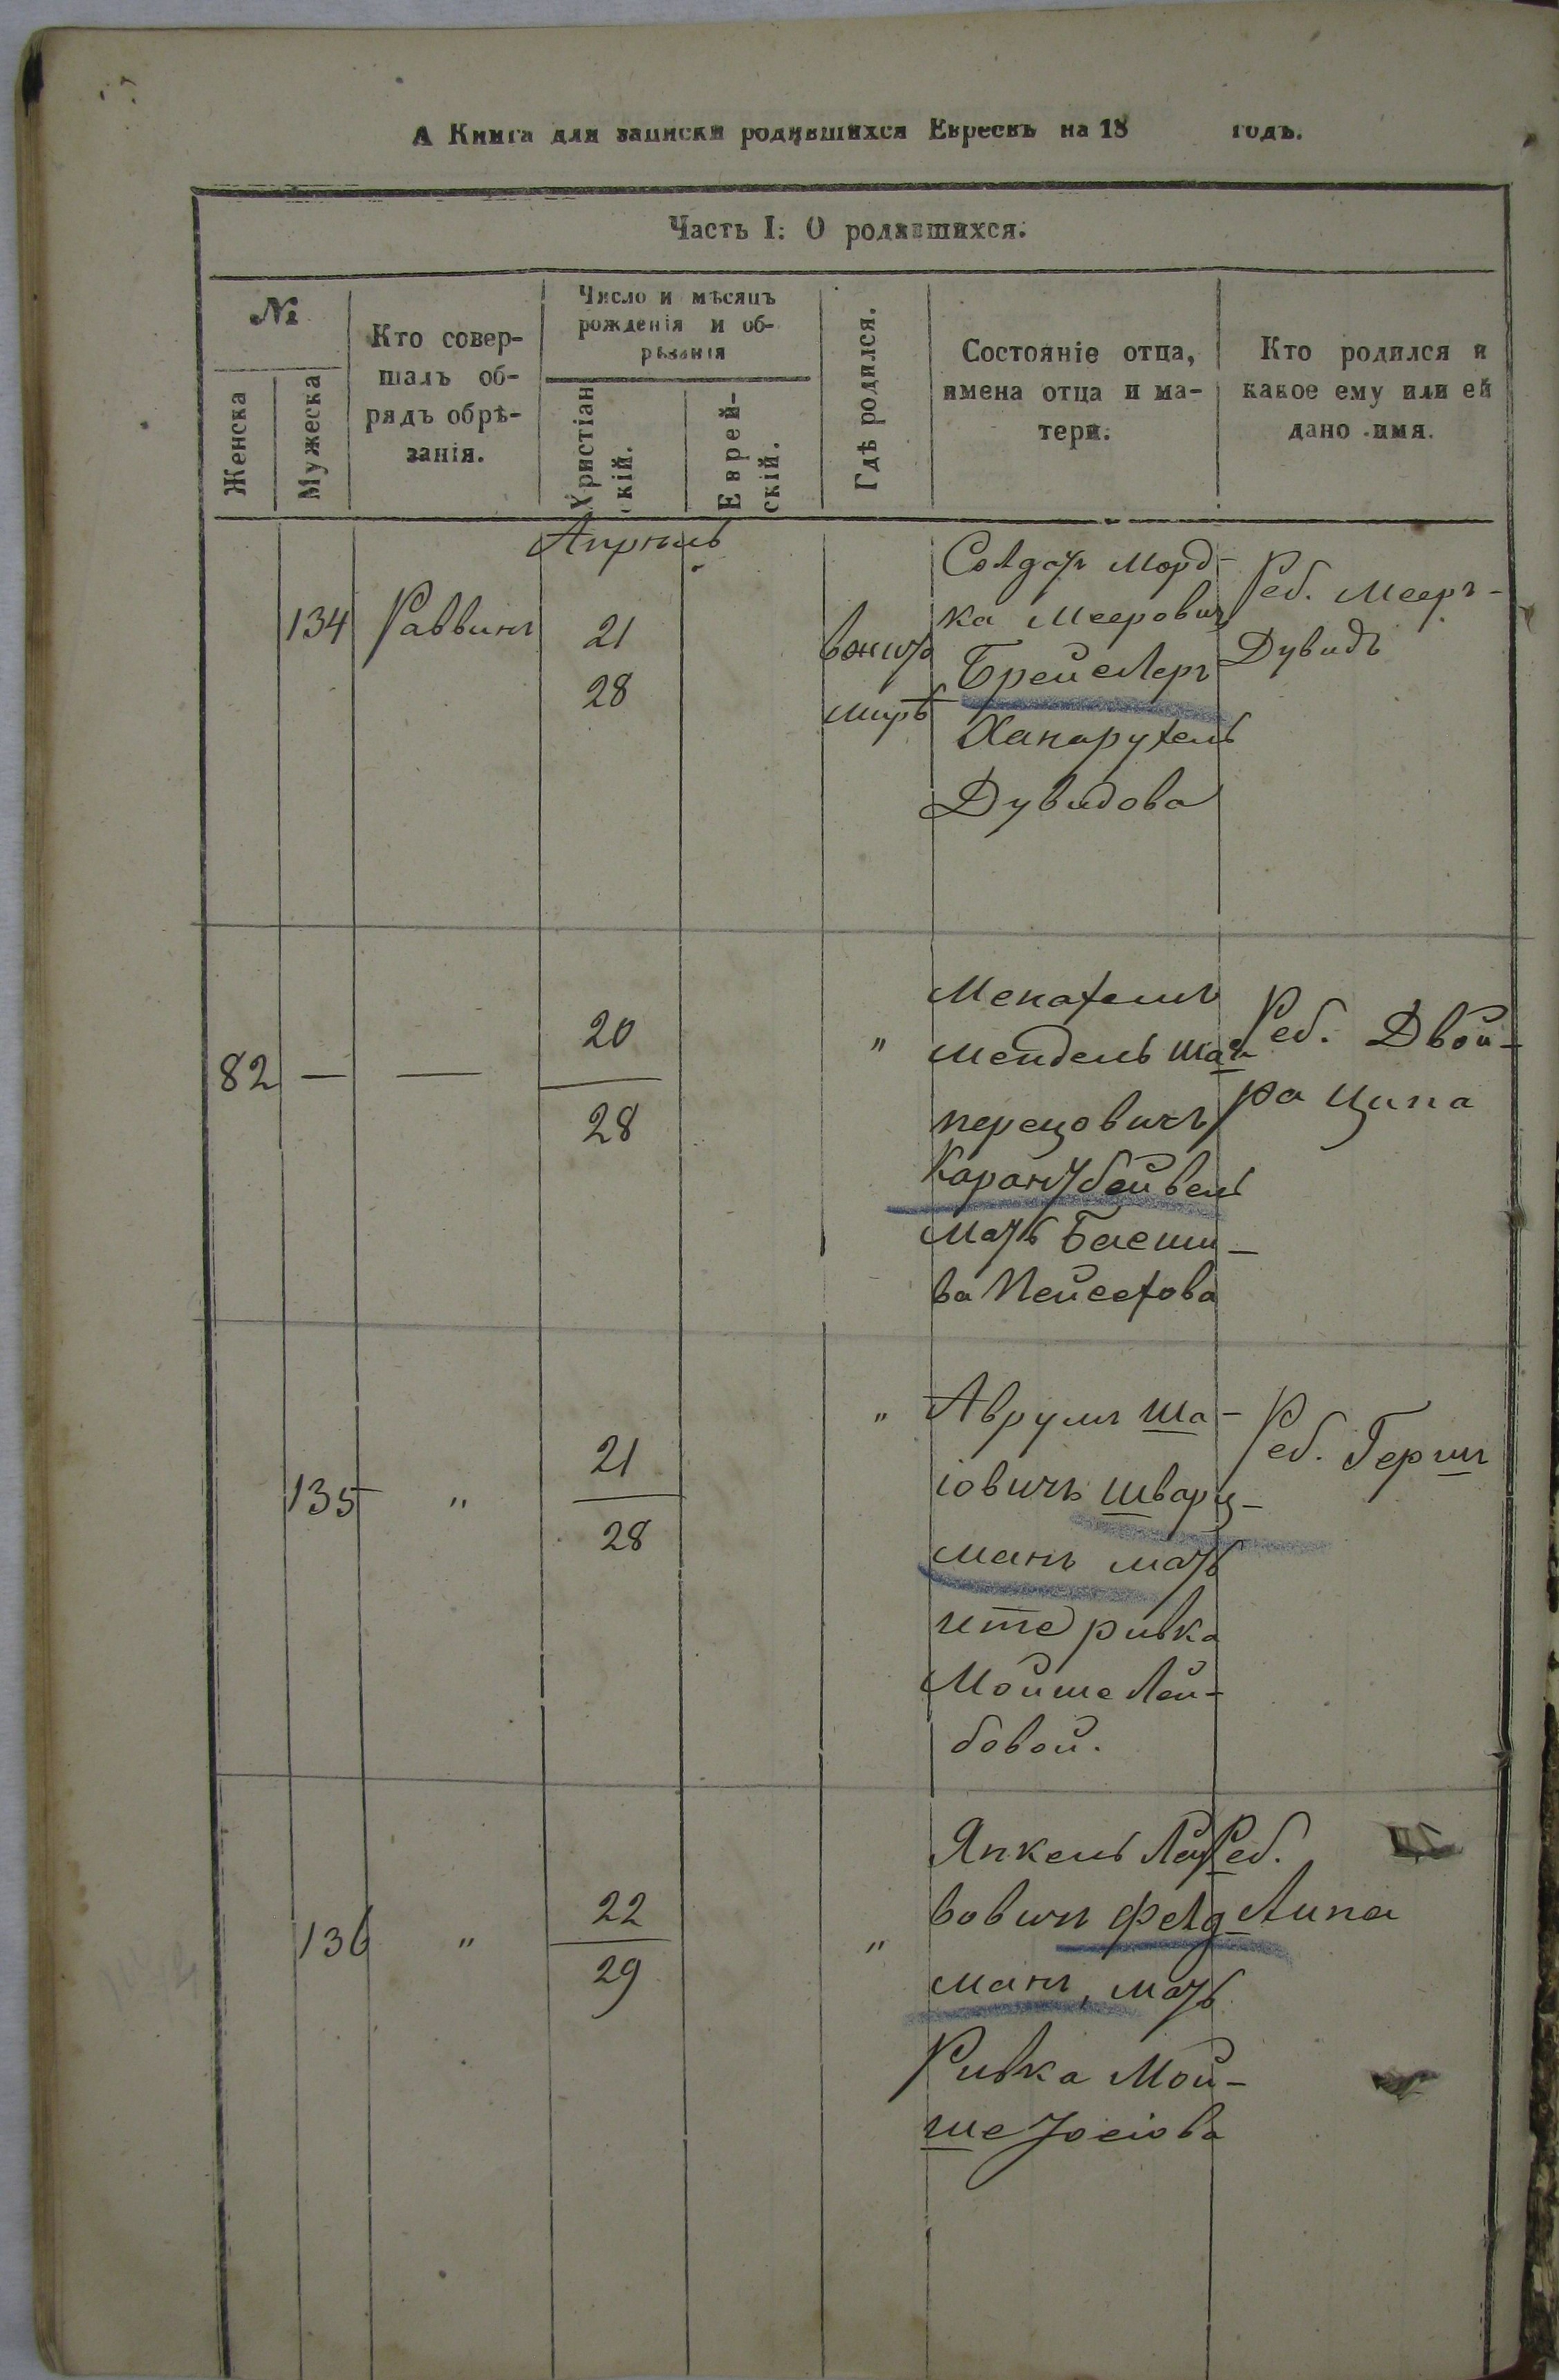 А Книга для записки родившихся Евреевъ на 18 годъ.
Часть I: О родившихся.
№
Женска
Мужеска
Кто совер-
шалъ об-
рядъ обрѣ-
занія.
Число и мѣсяцъ
рожденія и об-
рѣзанія
Христіан
скій.
Еврей-
скій.
Гдѣ родился.
Состояніе отца,
имена отца и ма-
тери.
Кто родился и
какое ему или ей
дано имя.
Апрѣль
134
Раввинъ
21
28
Солдатъ Морд-
ка Мееровичъ
Хана
Дувидова
Реб. Мееръ-
Дувидъ
82
—
—
20
28
"
Менахемъ
Мендель
перецовичъ
мать Басши-
ва Пейсехова
Реб. Двой-
ра Ципа
135
"
21
28
"
Аврумъ Ша-
іовичъ Шварц-
манъ мать
ите ривка
Мойше Лей-
бовой.
Реб. Герш
136
"
22
29
"
Янкель Лей
бовичъ Фелд
манъ, мать
Ривка Мой-
ше Іосіова
Реб.
Липа